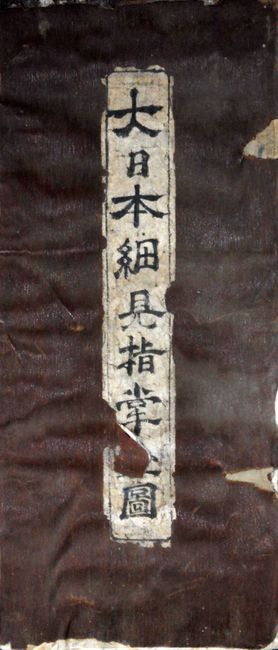 大日本細見指掌圖